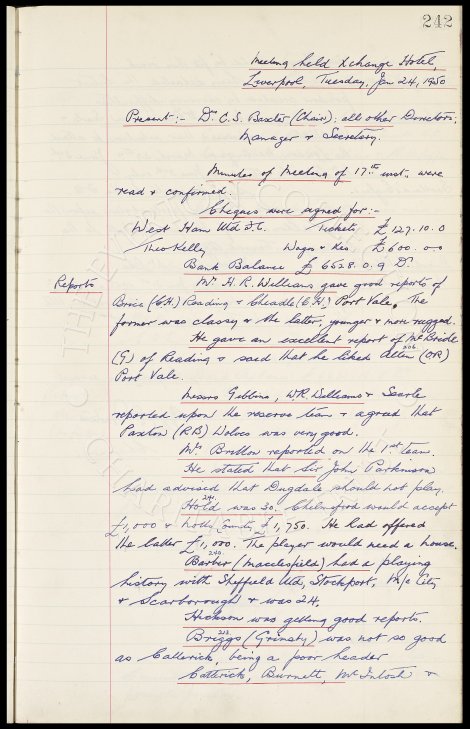 242
Meeting held Xchange Hotel,
Liverpool, Tuesday, Jan 24, 1950
Present:- Dr. C. S. Baxter (Chair); all other Directors,
Manager & Secretary.
Minutes of Meeting of 17th inst. were
read & confirmed.
Cheques were signed for:-
West Ham Utd F.C. Tickets £127.10.0
Theo Kelly Wages & Exs £600.0.0
Bank Balance £6528.0.9 Dr.
Reports
Mr. H. R. Williams gave good reports of
Brice (C.H.) Reading & Cheadle (C.H.) Port Vale. The
former was classy & the latter, younger & more rugged.
He gave an excellent report of McBride
(G) of Reading & said that he liked Allen (OR)
206
Port Vale.
Messrs Gibbins, W.R. Williams & Searle
reported upon the reserve team & agreed that
Paxton (RB) Wolves was very good.
Mr. Britton reported on the 1st team.
He stated that Sir John Parkinson
had advised that Dugdale should not play.
241
Hold was 30. Chelmsford would accept
£1,000 & Notts County £1,750. He had offered
the latter £1,000. The player would need a house.
240
Barber (Macclesfield) had a playing
history with Sheffield Utd, Stockport, M/c City
& Scarborough & was 24.
Hickson was getting good reports.
Briggs (Grimsby) was not so good
as Catterick, being a poor header
Catterick, Burnett, McIntosh &